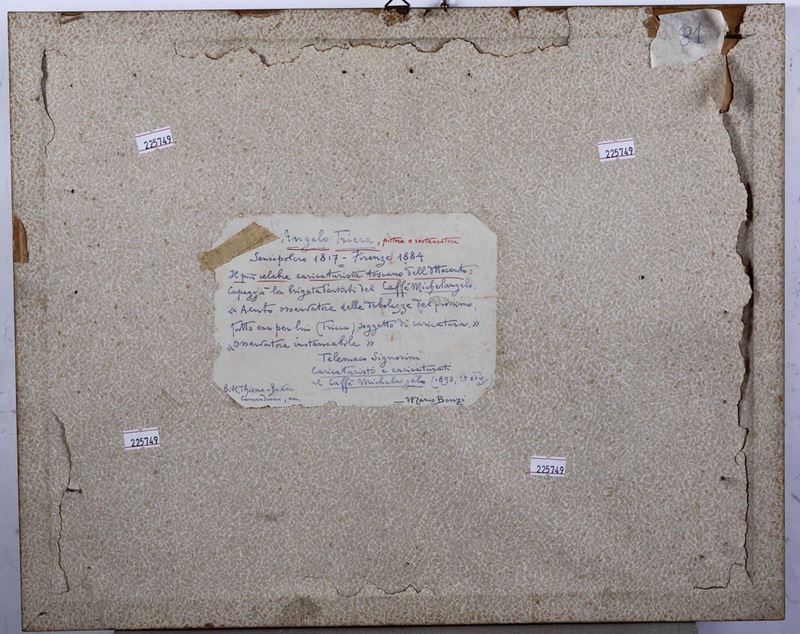 31
225749
225749
Angelo Tricca, pittore e restauratore
Sansepolcro 1817 - Firenze 1884
Il più celebre caricaturista toscano dell'Ottocento:
Capeggiò la brigata d'artisti del Caffè Michelangelo.
« Acuto osservatore delle debolezze del prossimo,
tutto era per lui (Tricca) soggetto di caricatura. »
« Osservatore instancabile »
Telemaco Signorini
Caricaturisti e caricaturati
al Caffè Michelangelo (1893, 1ª ediz.)
B.M. Thieme-Becker
Comanducci,
— Mario Bonzi
225749
225749